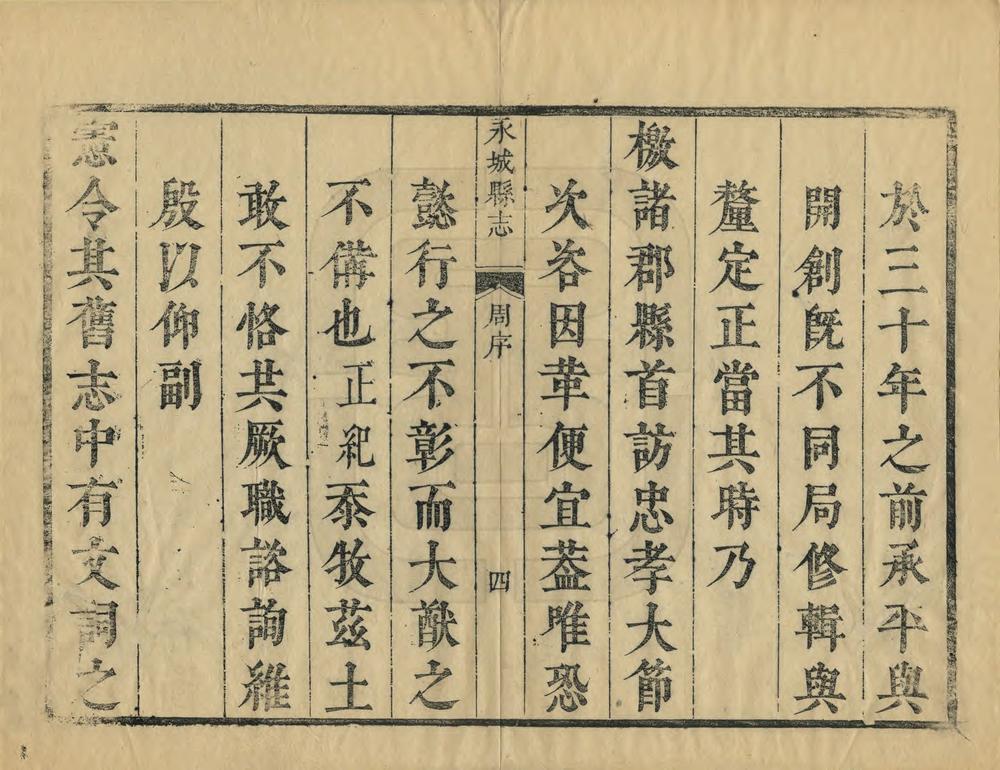 於三十年之前承平與
開創旣不同局修輯與
釐定正當其時乃
檄諸郡縣首訪忠孝大節
次咨因革便宜葢唯恐
永城縣志 周序 四
懿行之不彰而大猷之
不備也正紀忝牧茲土
敢不恪共厥職諮詢維
殷以仰副
憲令其舊志中有文詞之